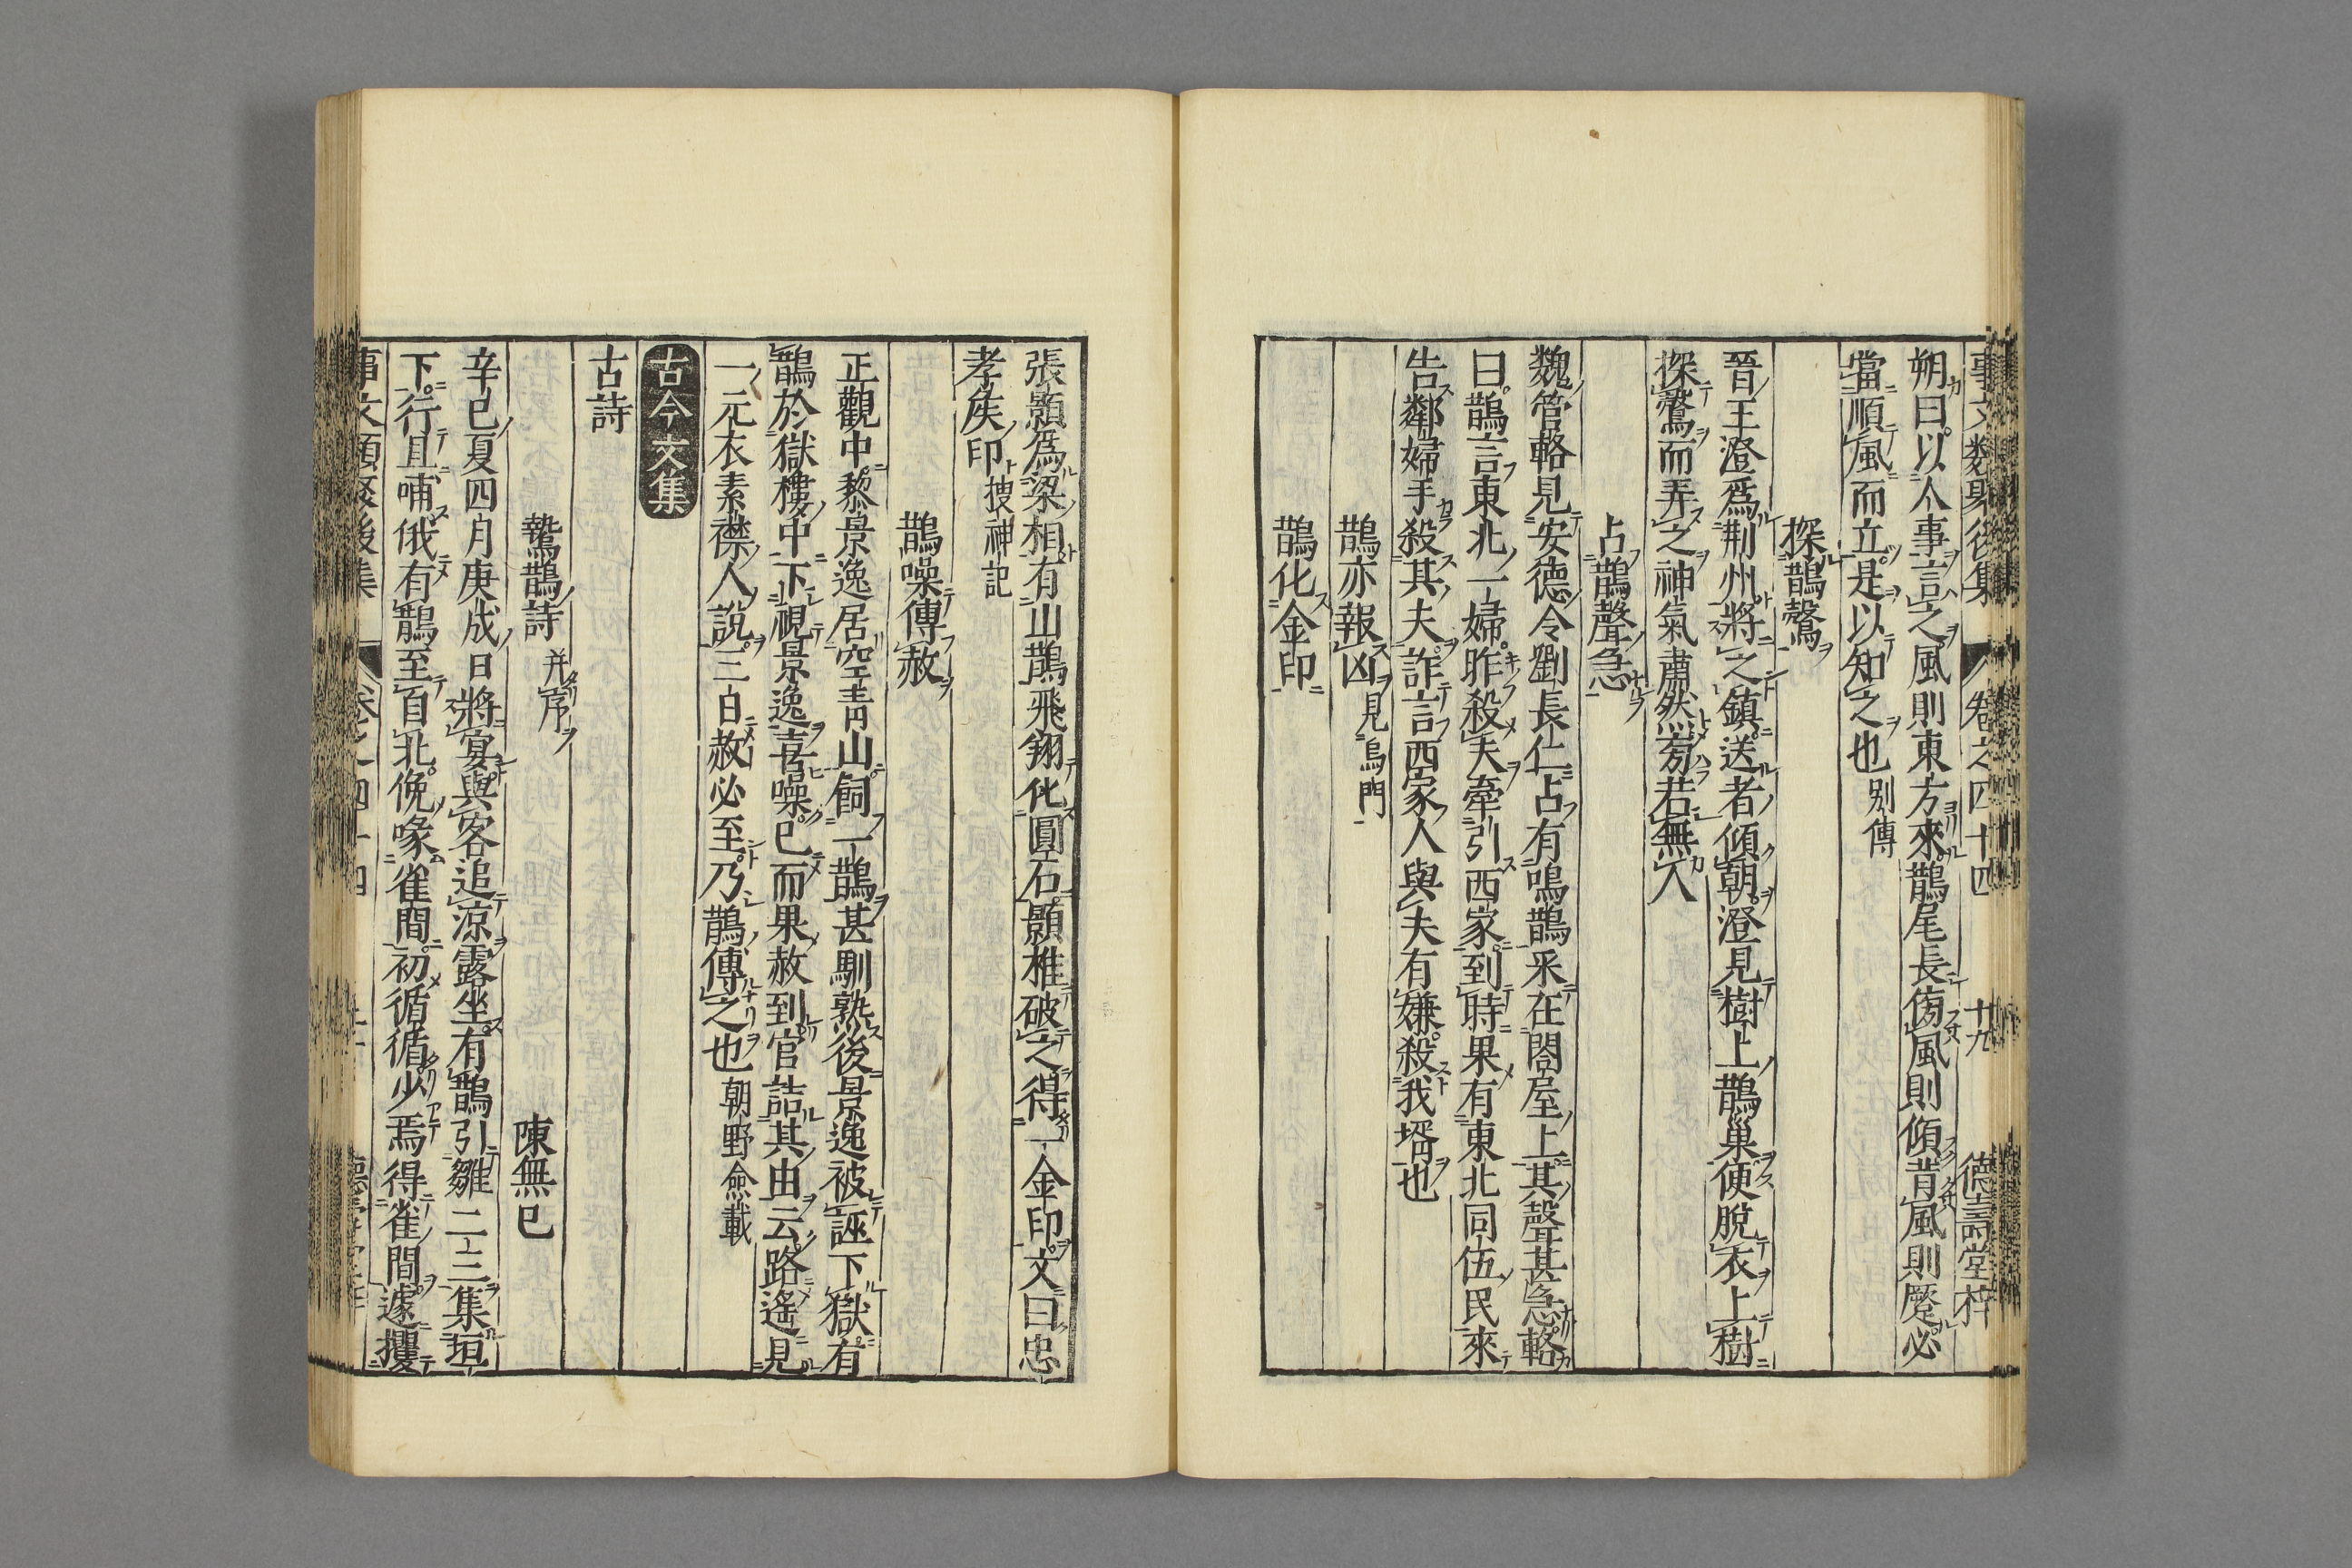 事文類聚後集 卷之四十四 十九 德壽堂梓
朔曰以人事言之風則東方來鵲尾長傍風則傾背風則蹷必
當順風而立是以知之也 別傳
探鵲鷇
晉王澄爲荆州將之鎮送者傾朝澄見樹上鵲巢便脫衣上樹
探鷇而弄之神氣肅然旁若無人
占鵲聲急
魏管輅見安德令劉長仁占有鳴鵲來在閤屋上其聲甚急輅
曰鵲言東北一婦昨殺夫牽引西家到時果有東北同伍民來
告鄰婦手殺其夫詐言西家人與夫有嫌殺我壻也
鵲亦報凶 見烏門
鵲化金印
張顥爲梁相有山鵲飛翔化圓石顥椎破之得一金印文曰忠
孝矦印 搜神記
鵲噪傳赦
正觀中黎景逸居空青山飼一鵲甚馴熟後景逸被誣下獄有
鵲於獄樓中下視景逸喜噪已而果赦到官詰其由云路遙見
一元衣素襟人說三日赦必至乃鵲傳之也 朝野僉載
古今文集
古詩
鷙鵲詩 并序 陳無已
辛巳夏四月庚戌日將宴與客追涼露坐有鵲引雛二三集垣
下行且哺俄有鵲至自北俛喙雀間初循循少焉得雀間遽攫
事文類聚後集 卷之四十四